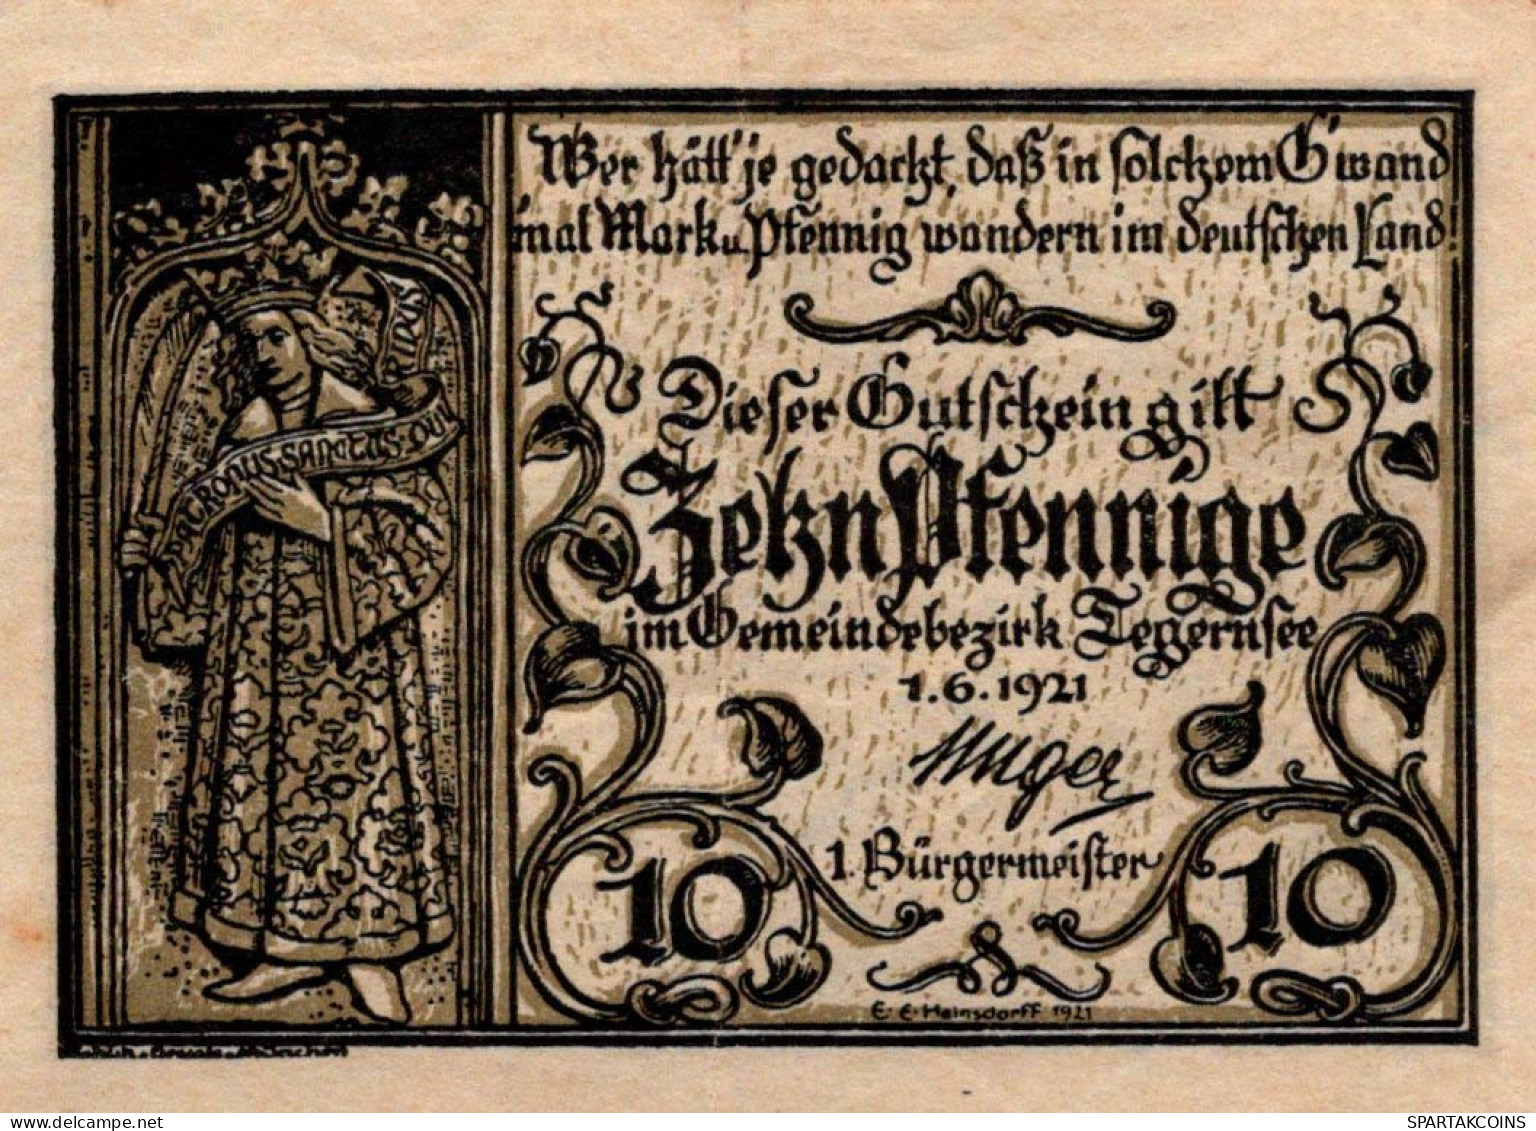 Wer hätt' je gedacht, daß in solchem G'wand
'mal Mark u. Pfennig wandern im deutschen Land!
PATRONUS·SANCTUS·QUI
RINUS
Dieser Gutschein gilt
Zehn Pfennige
im Gemeindebezirk Tegernsee
1.6.1921
1. Bürgermeister
10
10
E. E. Heinsdorff 1921
SPARTAKCOINS